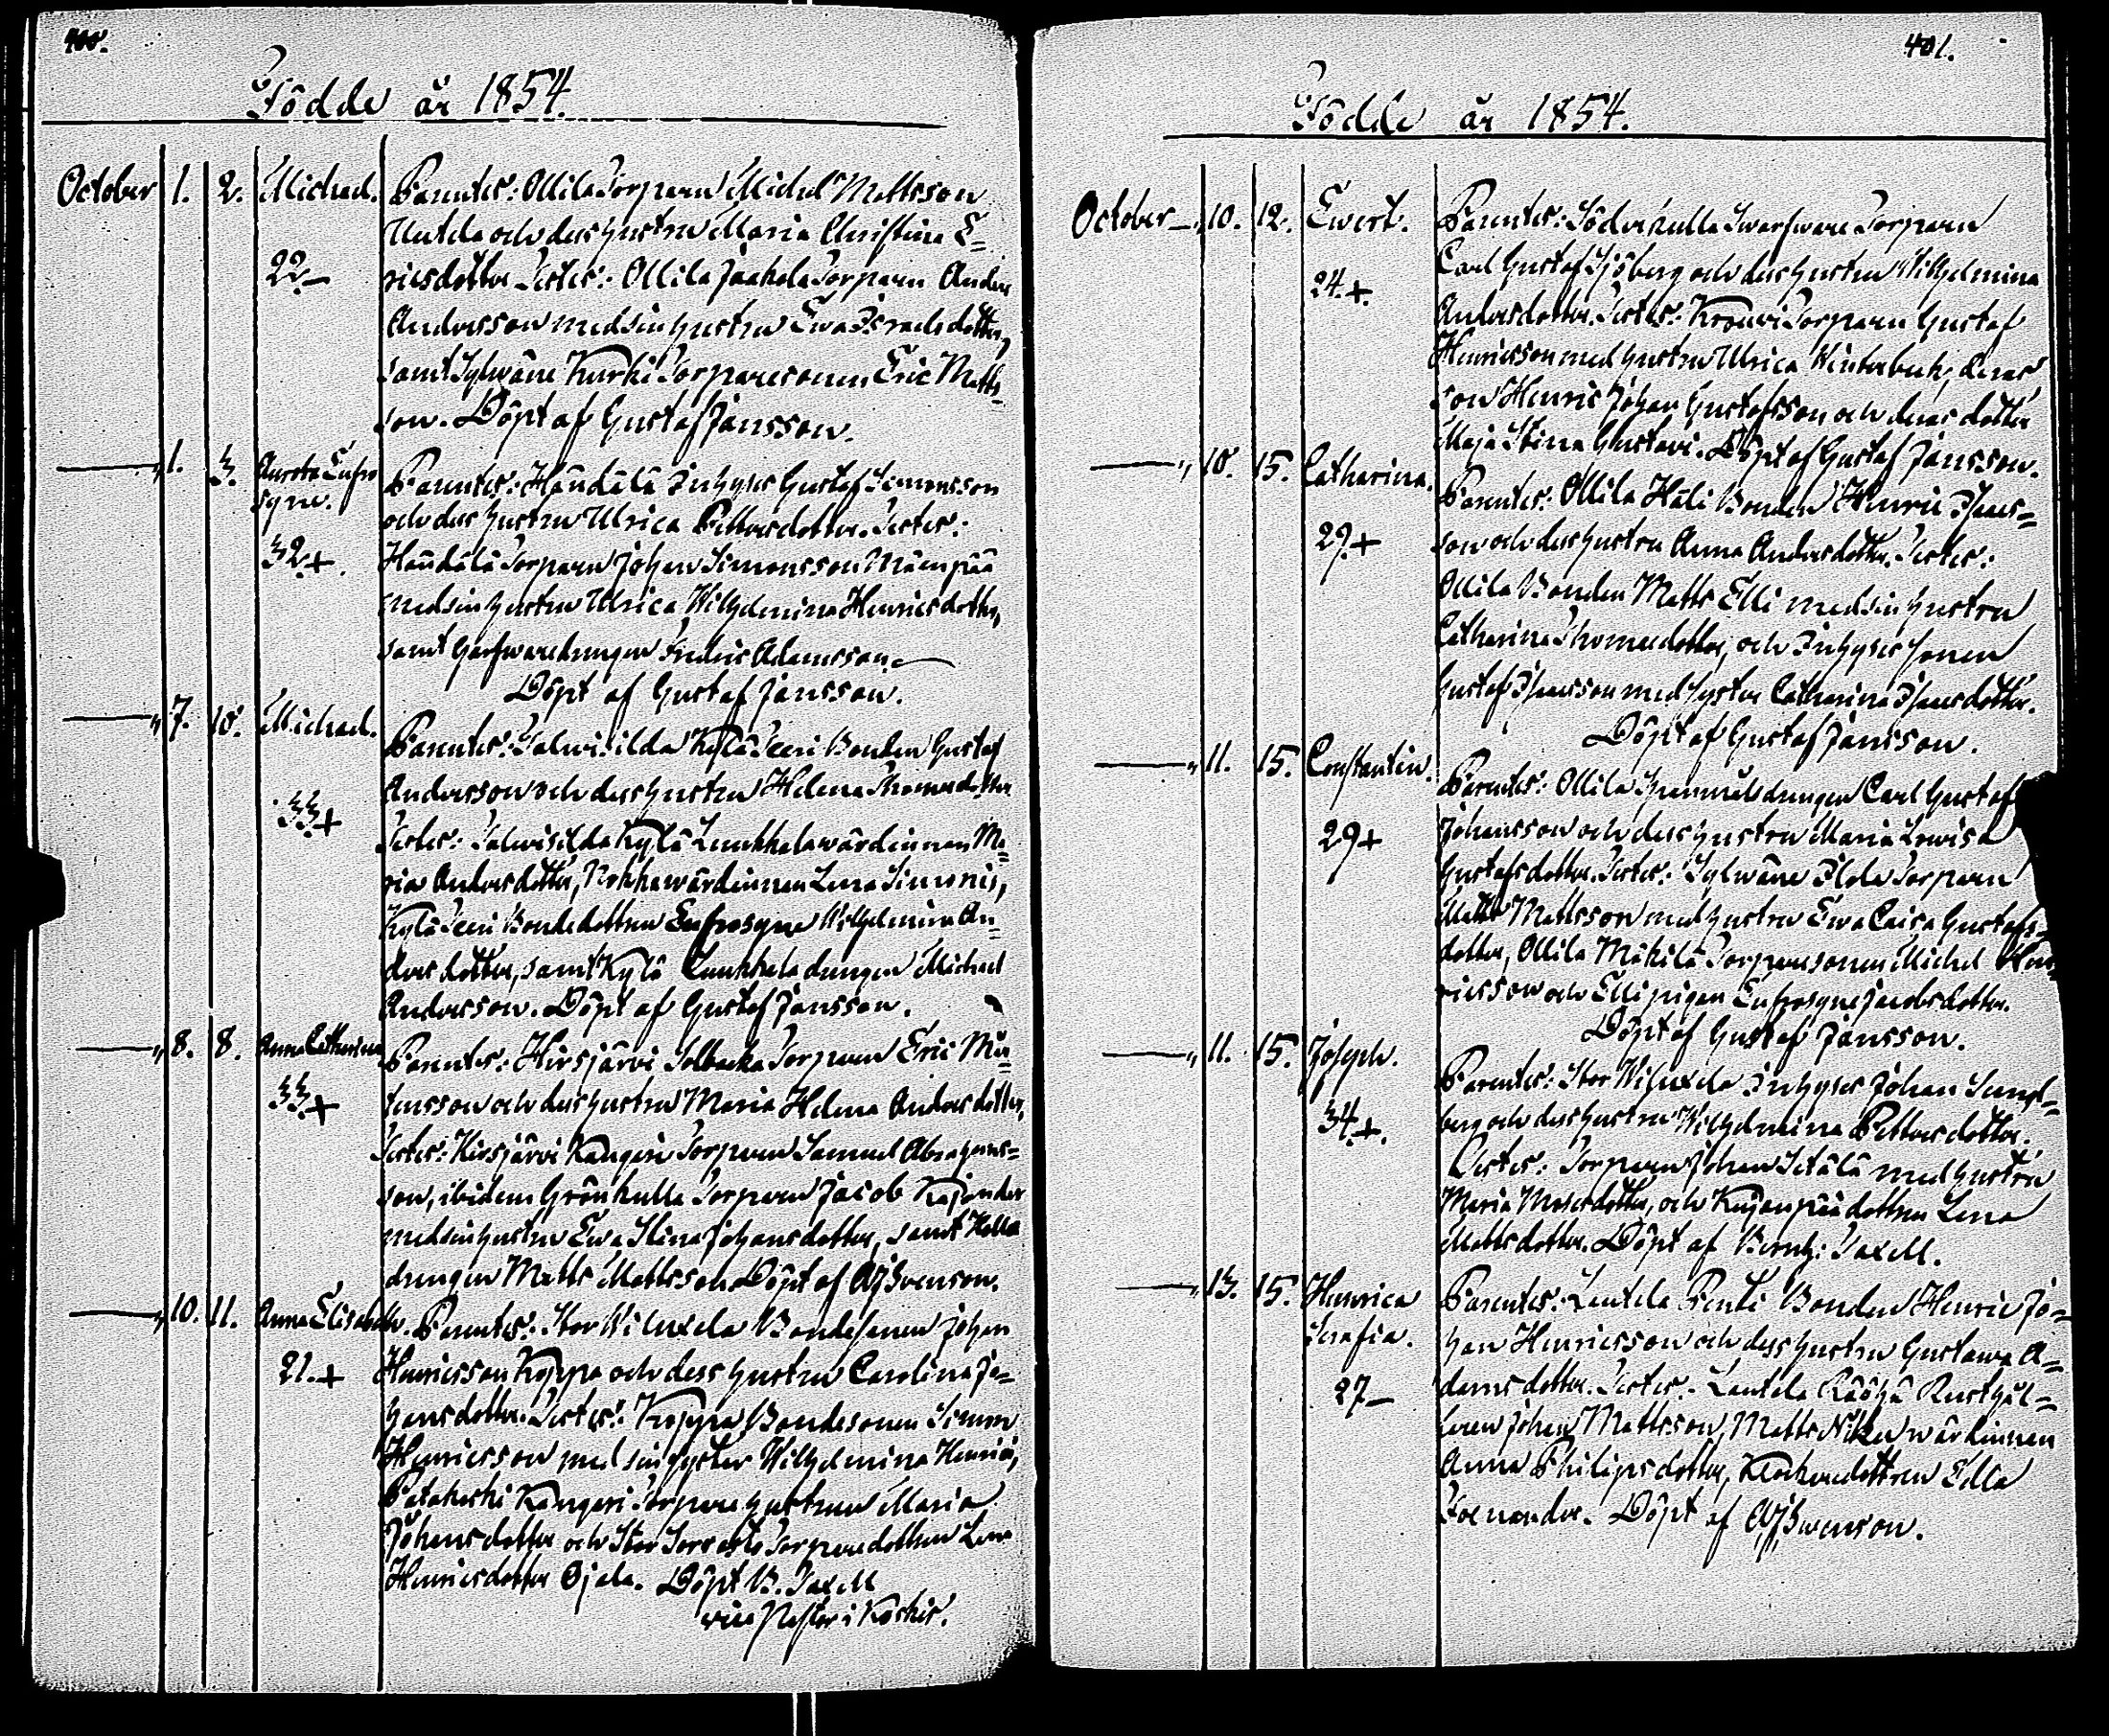 400.
Födde år 1854.
October 1. 2. Michael. Parentes: Ollila Torparen Michel Mattsson
Uutela och dess hustru Maria Christina E=
22.— ricsdotter Testes: Ollila Jaakola Torparen Anders
Andersson med sin hustru Ewa Israelsdotter,
samt Sylwäne Kurki Torparesonen Eric Matts-
son. Döpt af Gustaf Jansson.
—„ 1. 3. Aurora Eufro
syne. Parentes: Händälä Inhyses Gustaf Simonsson
och dess hustru Ulrica Pettersdotter. Testes:
32.+. Händälä Torparen Johan Simonsson Mäenpää
med sin hustru Ulrica Wilhelmina Henricsdotter,
samt Garfwaredrängen Fredric Adamsson.—
Döpt af Gustaf Jansson.
—„ 7. 10. Michael.
Parentes: Talwisilda Kylä Seeri Bonden Gustaf
Andersson och dess hustru Helena Thomasdotter
33+ Testes: Talwisilda Kylä Luukkala wärdinnan Ma=
ria Andersdotter, Rekka wärdinnan Lena Simonis,
Kylä Seeri Bondedottren Eufrosyne Wilhelmina An=
dersdotter, samt Kylä Luukkala drängen Michael
Andersson. Döpt af Gustaf Jansson.
—„ 8. 8. Anna Catharina
Parentes: Hirsjärvi Solbacka Torparen Eric Mår=
33.+ tensson och dess hustru Maria Helena Andersdotter,
Testes: Hirsjärvi Kangari Torparen Samuel Abrahams=
son, ibidem Grönkulla Torparen Jacob Kajander
med sin hustru Ewa Stina Johansdotter, samt
drängen Matts Mattsson Döpt af AJSvenson.
—„ 10. 11. Anna Elisabeth. Parentes: Stor Wiluxela Bondesonen Johan
21.+ Henricsson Koppa och dess hustru Carolina Jo=
hansdotter. Testes: Koppa Bondesonen Simon
Henricsson med sin syster Wilhelmina Henrici,
Patakoski Kangari Torpare hustrun Maria
Johansdotter och Stor Torparedottren Lena
Henricsdotter Ojala. Döpt B. Taxell
vice Pastor i Koskis.
401.
Födde år 1854.
October —„ 10. 12. Ewert. Parentes: Söderkulla Swarfware Torparen
Carl Gustaf Sjöberg och dess hustru Wilhelmina
24.+. Andersdotter. Testes: Krouvi Torparen Gustaf
Henricsson med hustru Ulrica Winterbeck, deras
son Henric Johan Gustafsson och deras dotter
Maja Stina Gustavi. Döpt af Gustaf Jansson.
—„ 10. 15. Catharina.
Parentes: Ollila Häli Bonden Henric Isacs=
29.+ son och dess hustru Anna Andersdotter. Testes:
Ollila Bonden Matts Elli med sin hustru
Catharina Thomasdotter, och Inhyses sonen
Gustaf Isacsson med syster Catharina Isacsdotter.
Döpt af Gustaf Jansson.
—„ 11. 15. Constantin.
Parentes: Ollila drängen Carl Gustaf
29+ Johansson och dess hustru Maria Lowisa
Gustafsdotter. Testes: Sylwäne Torparen
Matts Mattsson med hustru Ewa Caisa Gustafs=
dotter, Ollila Mäkilä Torparesonen Michel Hen
ricsson och Elli pigan Eufrosyne Jacobsdotter.
Döpt af Gustaf Jansson.
—„ 11. 15. Joseph.
Parentes: Stor Wiluxela Inhyses Johan Sund=
34.+. berg och dess hustru Wilhelmina Pettersdotter.
Testes: Torparen Johan Seitälä med hustru
Maria Matsdotter, och Kujanpää dottren Lena
Mattsdotter. Döpt af Berntz: Taxell.
—„ 13. 15. Henrica
Serafia. Parentes: Lautela Pentti Bonden Henric Jo=
han Henricsson och dess hustru Gustawa A=
27— damsdotter. Testes: Lautela Rusthål=
laren Johan Mattsson, Matts wärdinnan
Anna Philipsdotter, Klockaredottren Edla
Foenander. Döpt af AJSvenson.